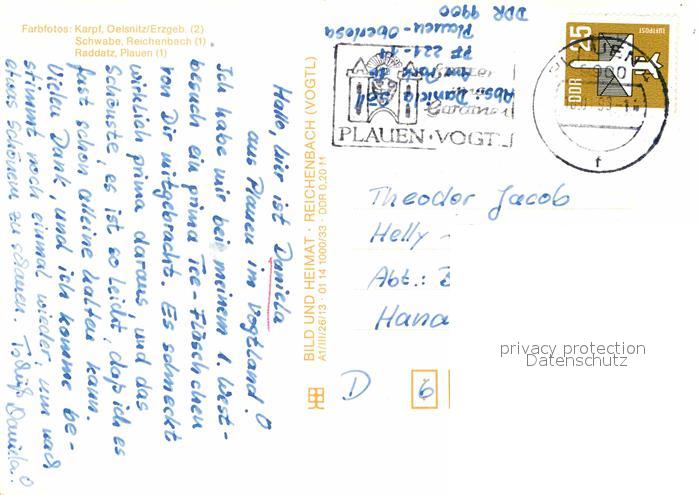 Farbfotos: Karpf, Oelsnitz/Erzgeb. (2)
Schwabe, Reichenbach (1)
Raddatz, Plauen (1)
Hallo, hier ist Daniela
aus Plauen im Vogtland!
Ich habe mir bei meinem 1. West-
besuch ein prima Tee-Fläschchen
von Dir mitgebracht. Es schmeckt
wirklich prima daraus, und das
Schönste, es ist so leicht, daß ich es
fast schon alleine halten kann.
Vielen Dank, und ich komme be-
stimmt noch einmal wieder, um nach
etwas Schönem zu schauen. Tschüß Daniela.
BILD UND HEIMAT · REICHENBACH (VOGTL)
A1/III/26/13 · 01 14 1000/33 · DDR 0,20 M
Abs.: Daniela
PF 221-14
Plauen-Oberlosa
9900
DDR
PLAUEN · VOGTL
PLAUEN
900
f
DDR 25
LUFTPOST
Theodor Jacob
Helly
Abt.:
Hana
D 6
privacy protection
Datenschutz